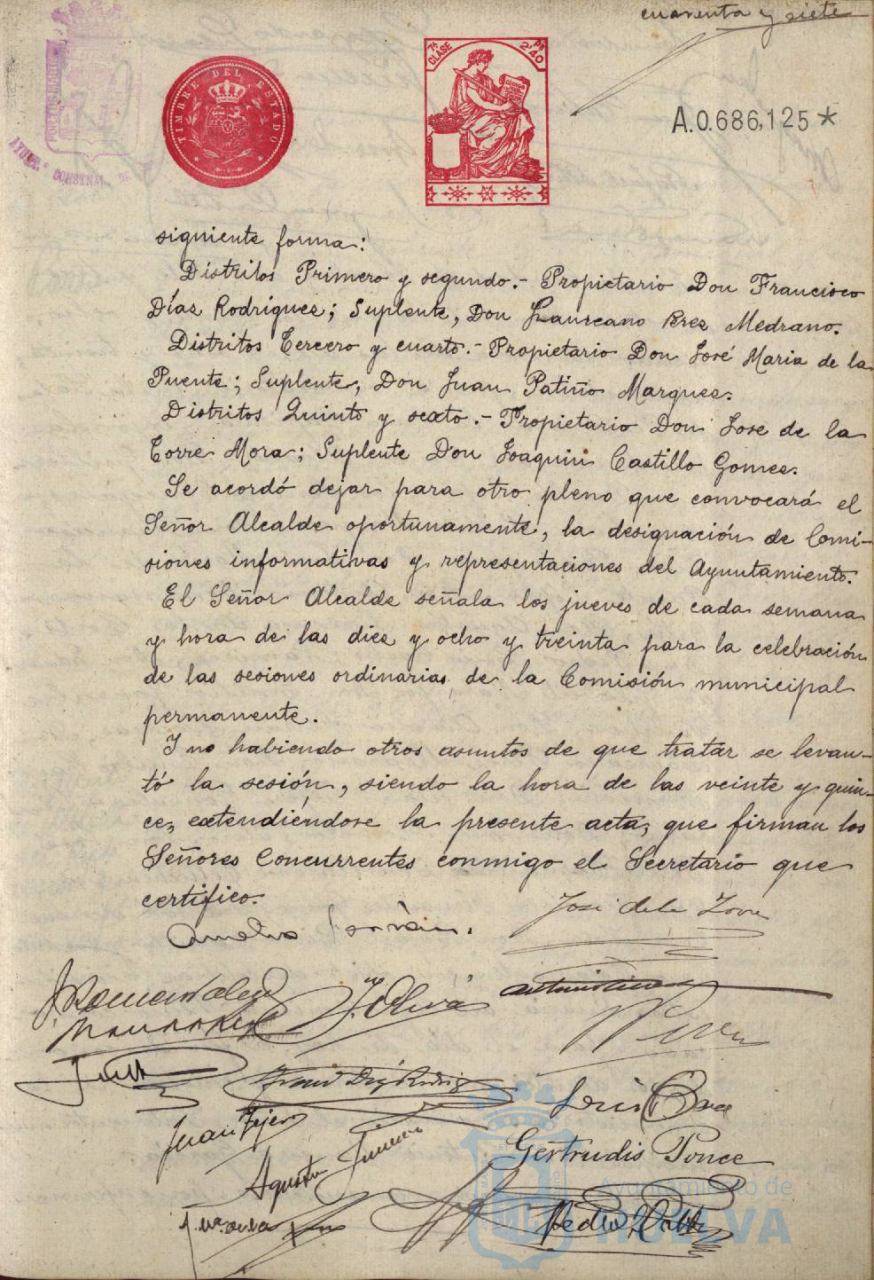 cuarenta y siete
TIMBRE DEL ESTADO
7ª CLASE
2'40
A.0.686,125*
siguiente forma:
Distritos Primero y segundo.- Propietario Don Francisco
Díaz Rodriguez; Suplente, Don Laureano Brez Medrano.
Distritos Tercero y cuarto.- Propietario Don José Maria de la
Puente; Suplente, Don Juan Patiño Marquez.
Distritos Quinto y sexto.- Propietario Don Jose de la
Torre Mora; Suplente Don Joaquin Castillo Gomez.
Se acordó dejar para otro pleno que convocará el
Señor Alcalde oportunamente, la designación de Comi-
siones informativas y representaciones del Ayuntamiento.
El Señor Alcalde señala los jueves de cada semana
y hora de las diez y ocho y treinta para la celebración
de las sesiones ordinarias de la Comisión municipal
permanente.
Y no habiendo otros asuntos de que tratar se levan-
tó la sesión, siendo la hora de las veinte y quin-
ce, extendiéndose la presente acta, que firman los
Señores Concurrentes conmigo el Secretario que
certifico.
José de la Torre
J. Oliva
Juan Tejero
Luis
Gertrudis Ponce
Agustin
Pedro
Ayuntamiento de
HUELVA